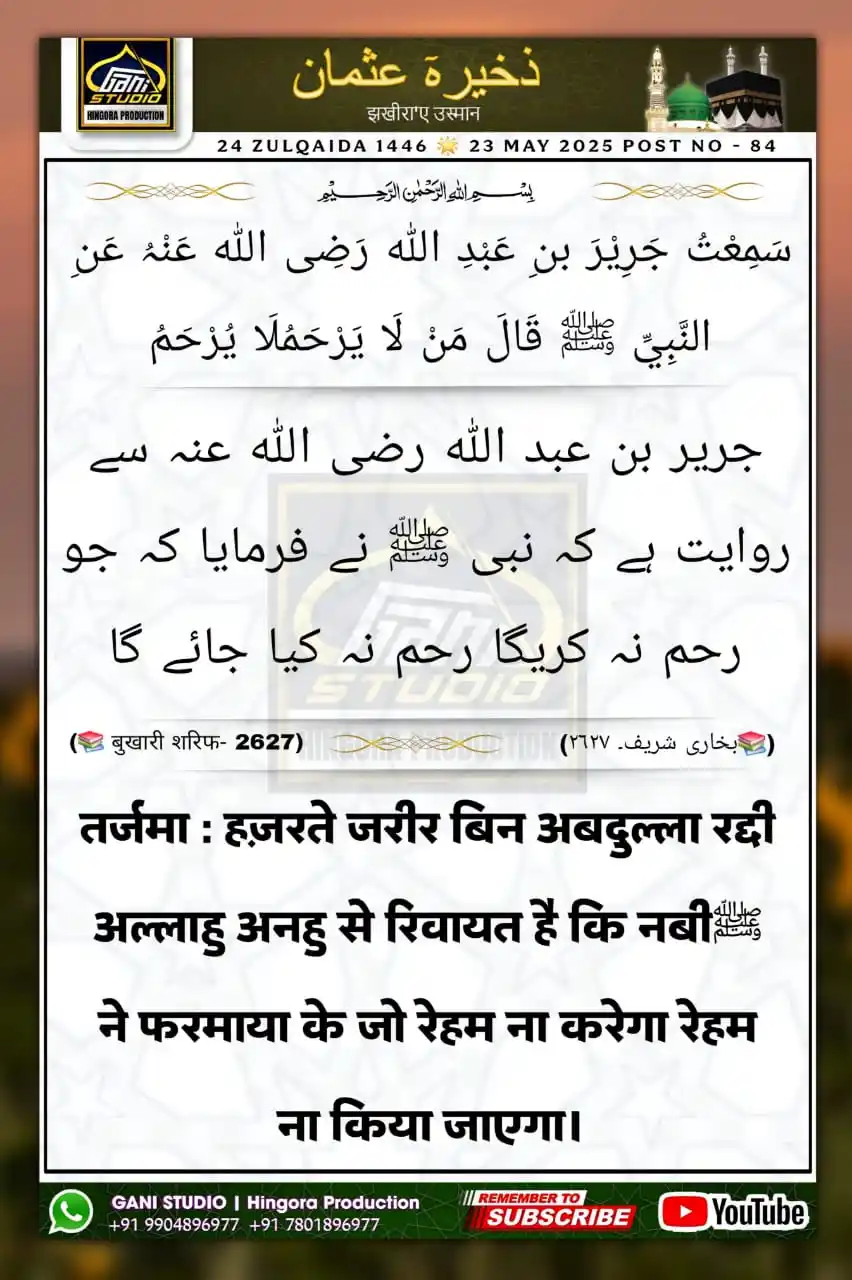 Gani
STUDIO
HINGORA PRODUCTION
ذخیرۂ عثمان
झखीरा'ए उस्मान
24 ZULQAIDA 1446 🌟 23 MAY 2025 POST NO - 84
بِسْمِ اللهِ الرَّحْمٰنِ الرَّحِيْمِ
سَمِعْتُ جَرِيْرَ بنِ عَبْدِ اللّٰه رَضِی اللّٰه عَنْہُ عَنِ
النَّبِيِّ ﷺ قَالَ مَنْ لَا يَرْحَمُلَا يُرْحَمُ
جریر بن عبد اللّٰه رضی اللّٰه عنہ سے
روایت ہے کہ نبی ﷺ نے فرمایا کہ جو
رحم نہ کریگا رحم نہ کیا جائے گا
(📚بخاری شریف۔ ٢٦٢٧)
(📚 बुखारी शरिफ- 2627)
Gani
STUDIO
HINGORA PRODUCTION
तर्जमा : हज़रते जरीर बिन अबदुल्ला रद्दी
अल्लाहु अनहु से रिवायत है कि नबीﷺ
ने फरमाया के जो रेहम ना करेगा रेहम
ना किया जाएगा।
GANI STUDIO | Hingora Production
+91 9904896977 +91 7801896977
REMEMBER TO
SUBSCRIBE
YouTube